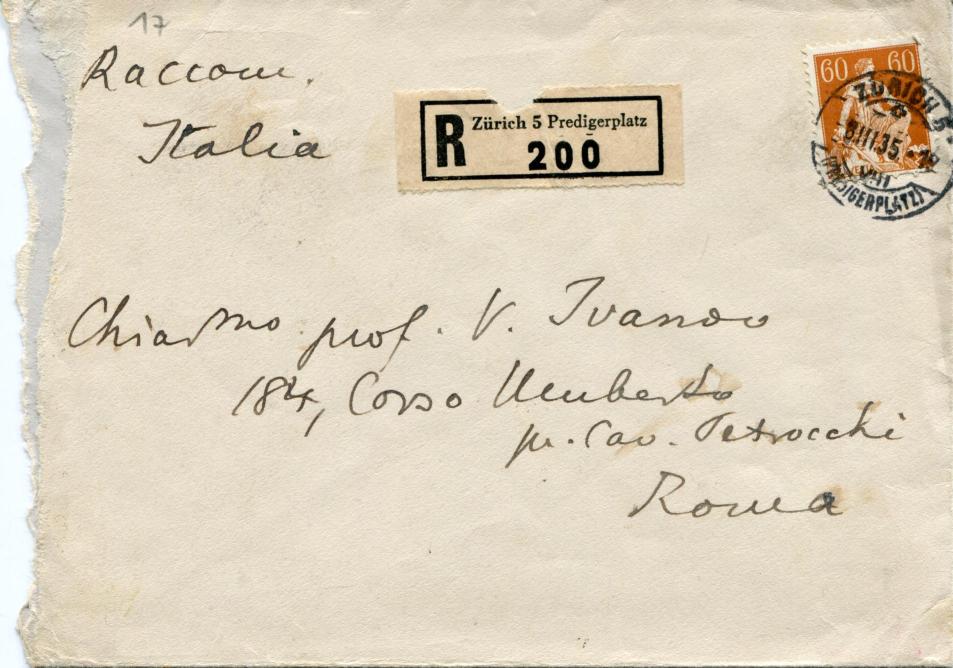 17
Raccom.
Italia
R Zürich 5 Predigerplatz
200
60 60
ZÜRICH 5
III.35.
VIII
(PREDIGERPLATZ)
Chiar mo prof. V. Ivanov
184, Corso Umberto
pr. Cav. Petrocchi
Roma